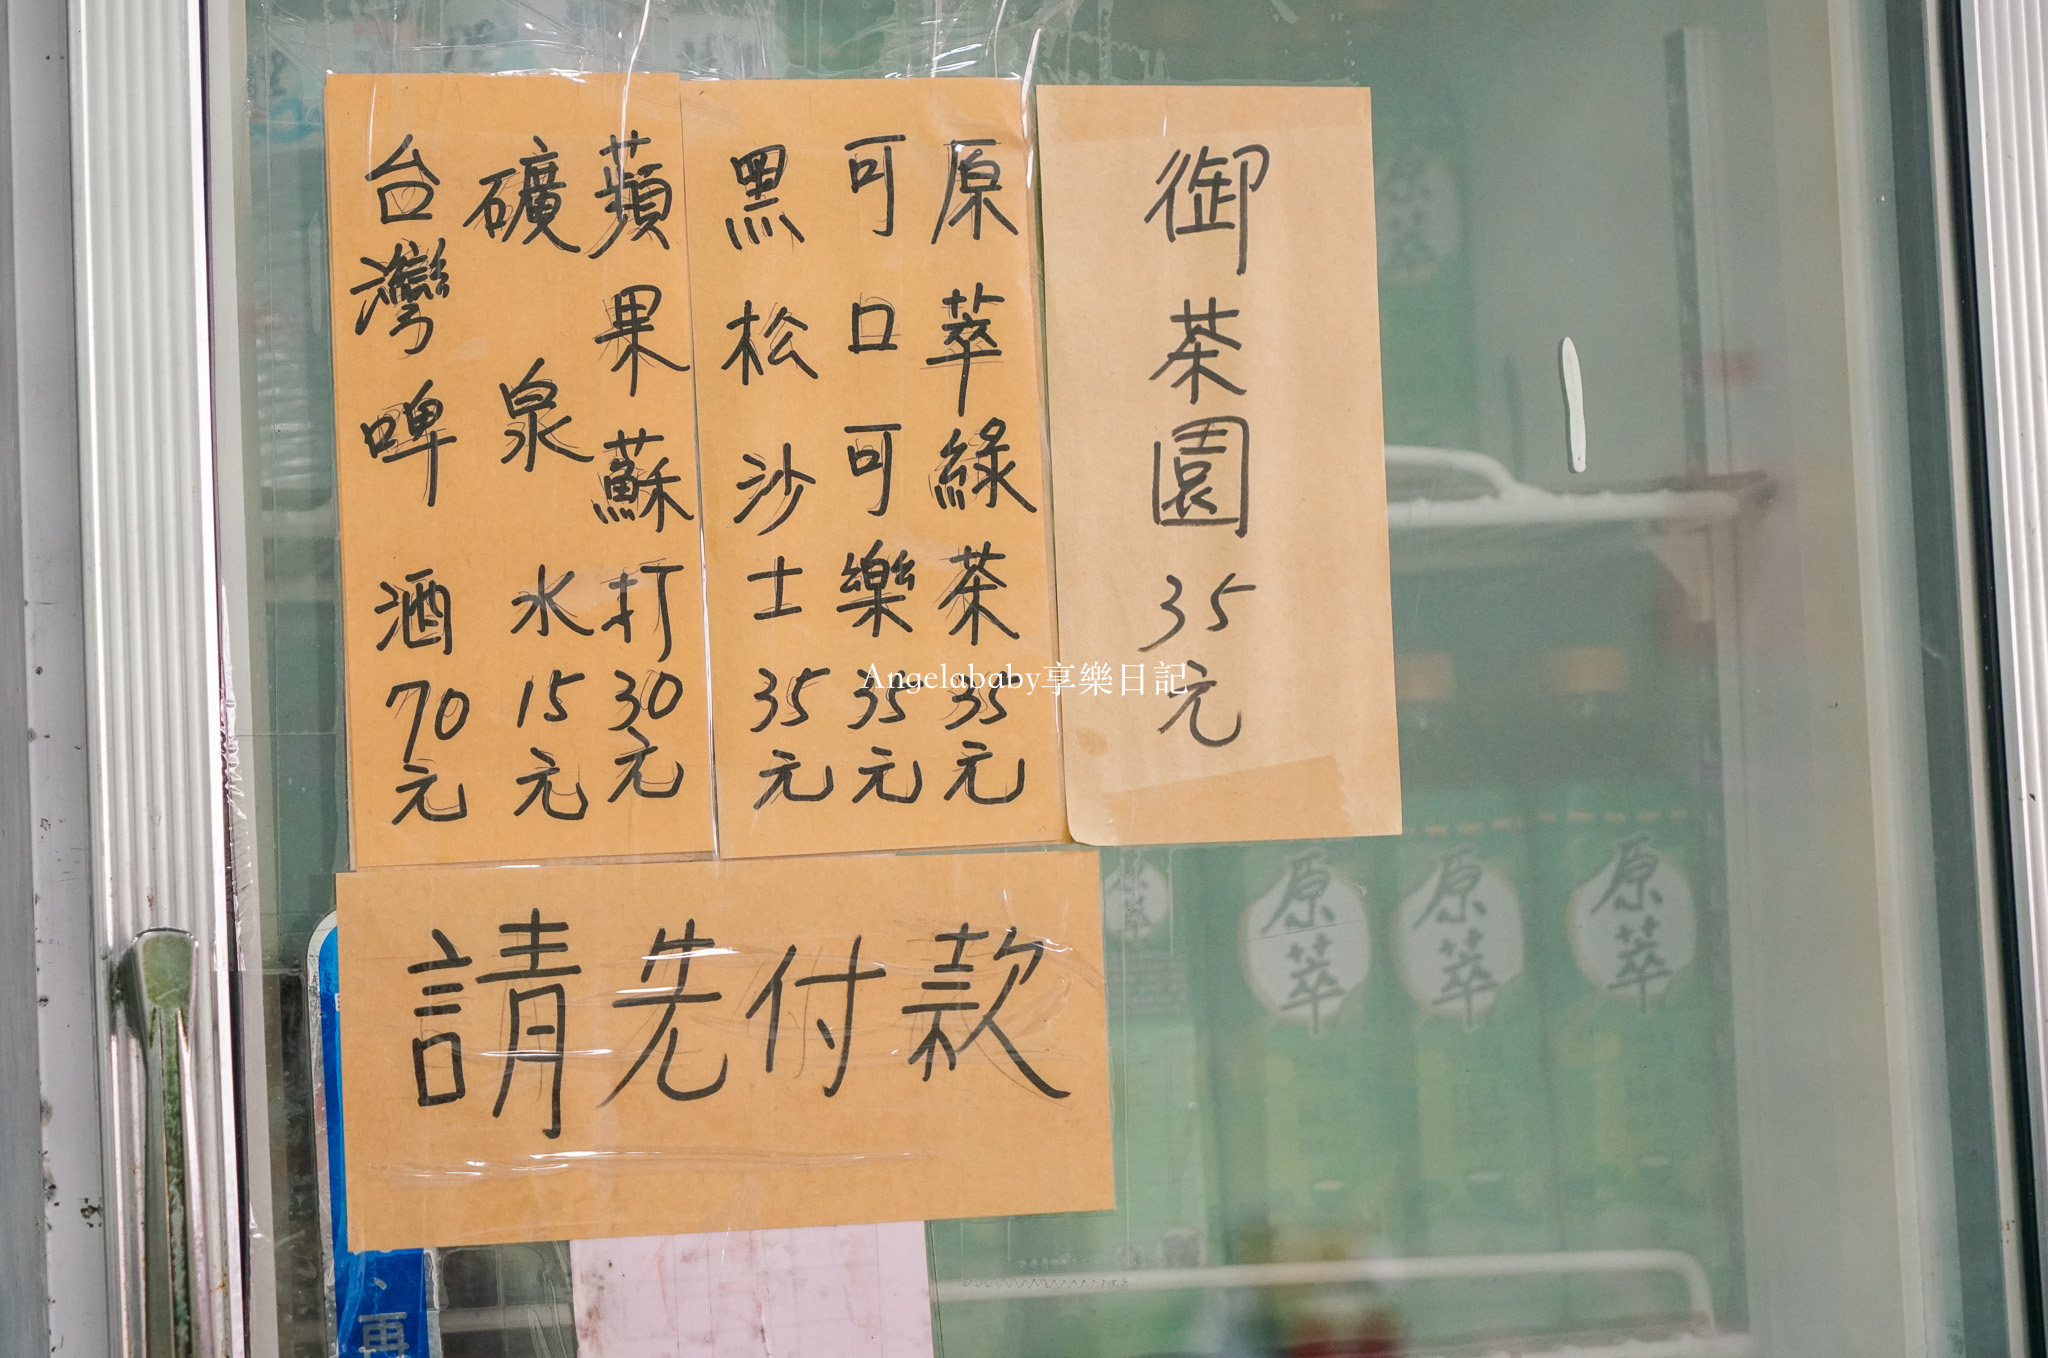 御茶園35元
原萃綠茶35元
可口可樂35元
黑松沙士35元
蘋果蘇打30元
礦泉水15元
台灣啤酒70元
請先付款
Angelababy享樂日記
原萃
原萃
原萃
原萃
再